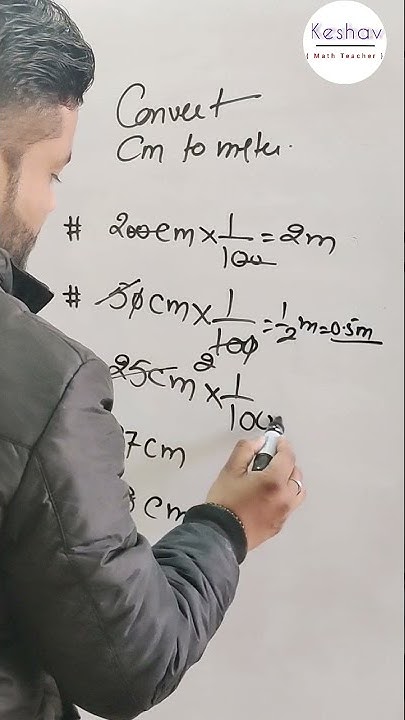 Keshav
{ Math Teacher }
Convert
Cm to meter.
# 200cm × 1/100 = 2m
# 50cm × 1/100 2 = 1/2 m = 0.5m
25cm × 1/100
7cm
cm